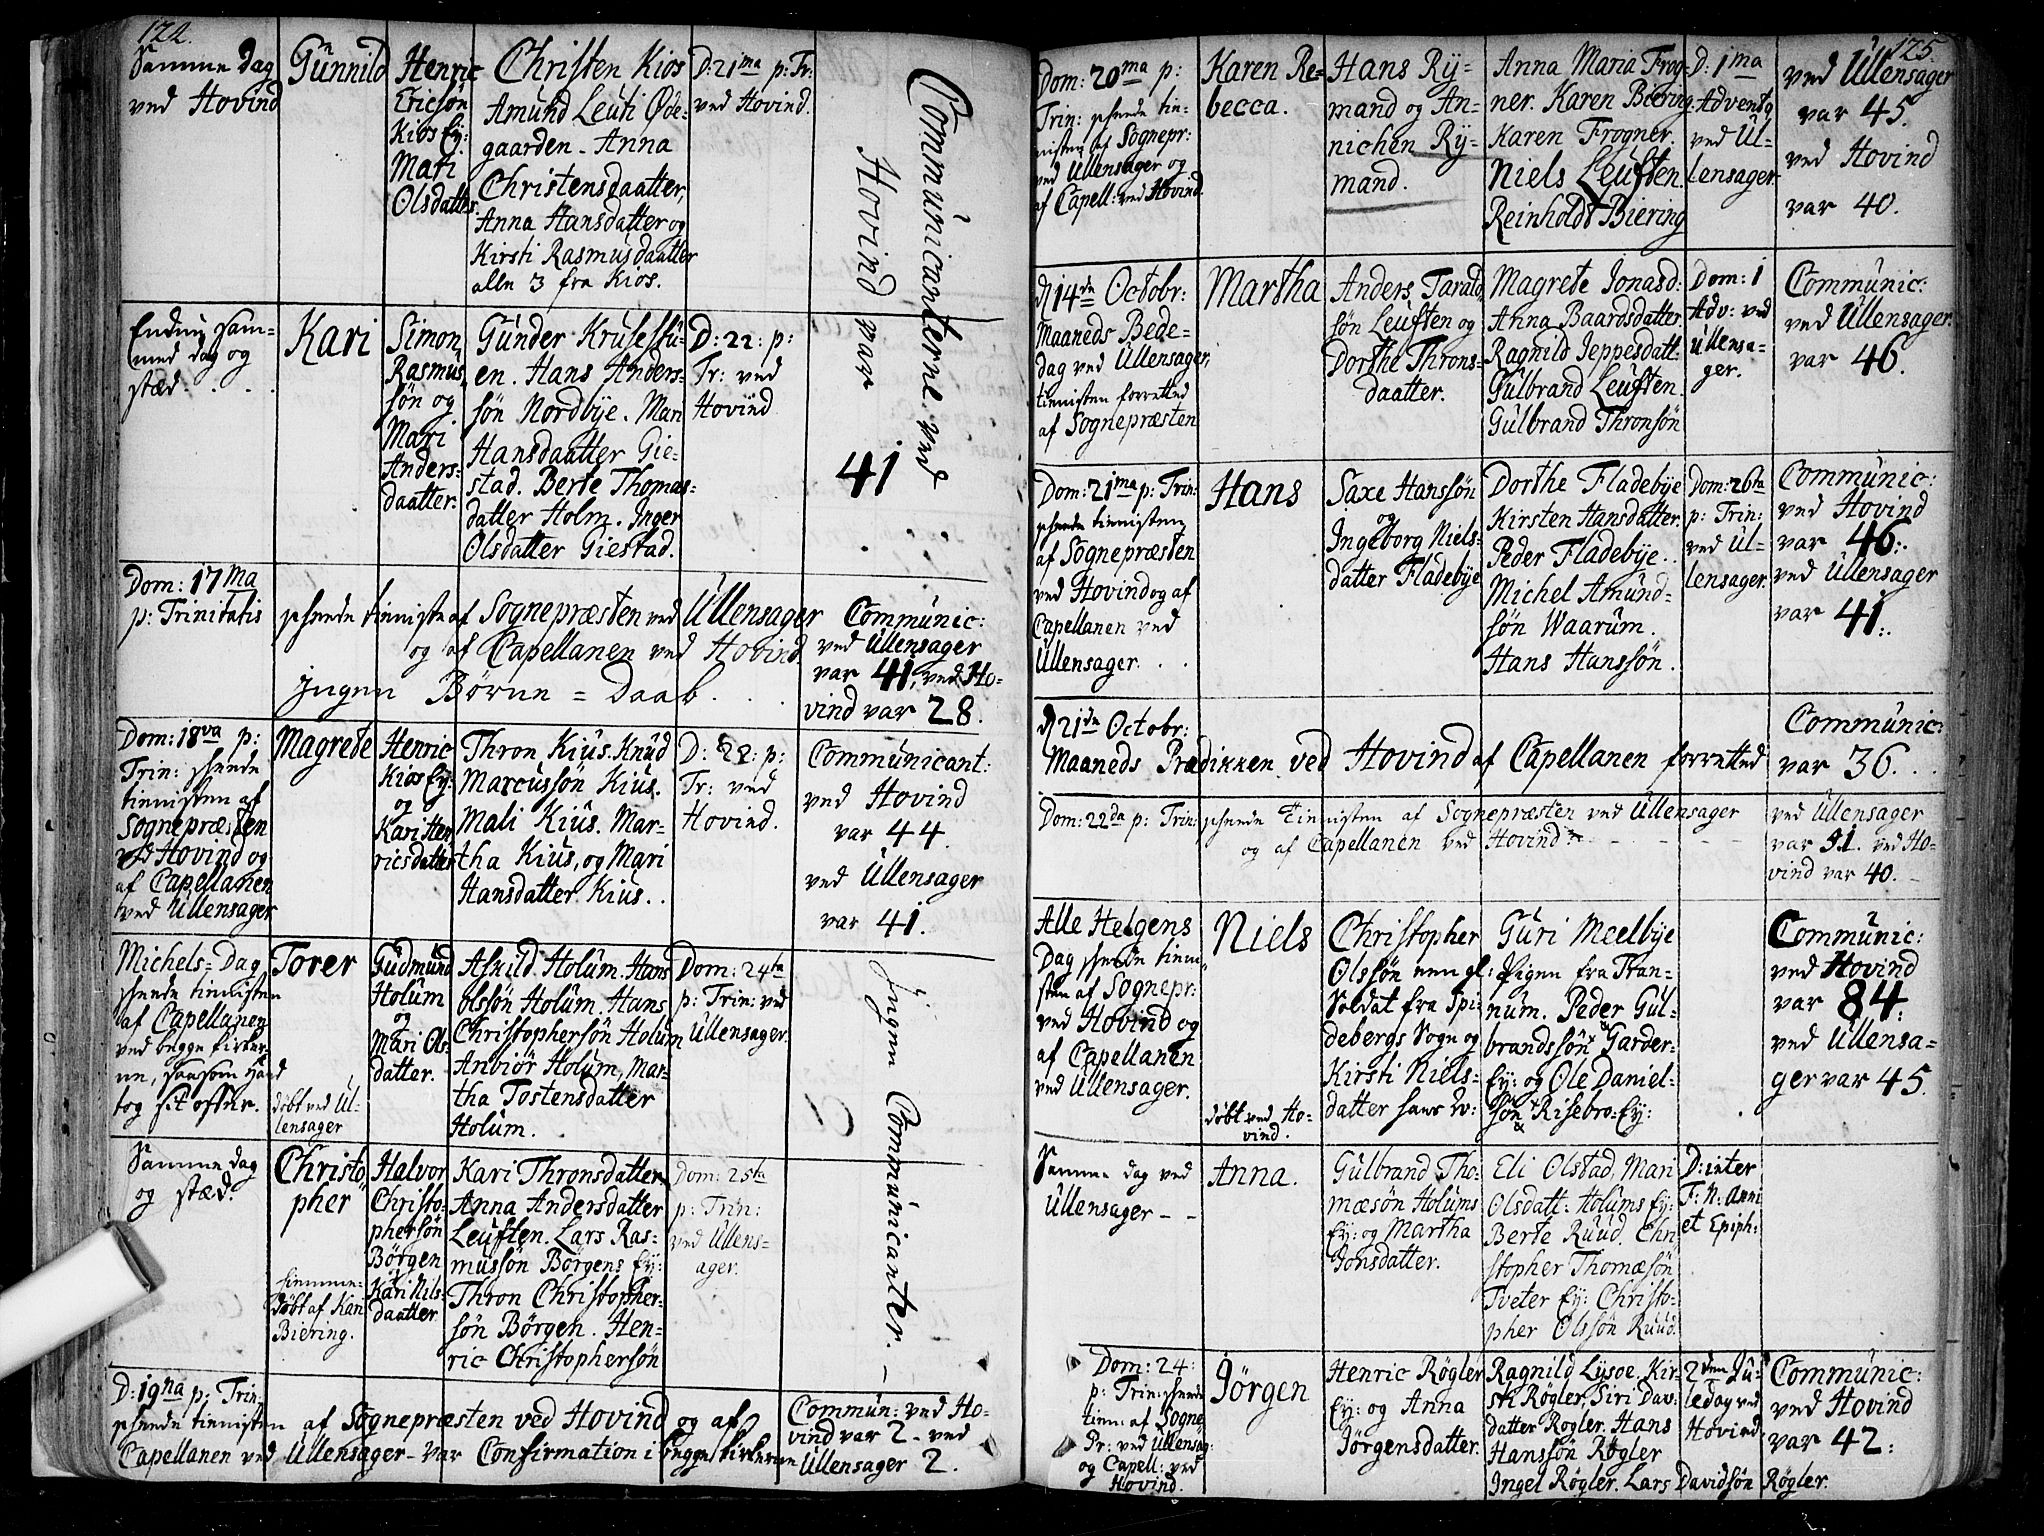 122.
Samme Dag
ved Hovind
Gunnild
Henric
Ericsön
Kios Ey:
Mari
Olsdatter.
Christen Kios
Amund Leuti Öde-
gaarden. Anna
Christensdaatter,
Anna Hansdatter og
Kirsti Rasmusdaatter
alle 3 fra Kios.
D: 21ma p: Tr:
ved Hovind.
Communicanterne ved
Hovind var
41
Endnu sam-
med dag og
stæd.
Kari
Simon
Rasmus
sön og
Mari
Anders-
daatter.
Gunder Krusesstu-
en. Hans Anders-
sön Nordbye. Mari
Hansdaatter Gie-
stad. Berte Thomas-
datter Holm. Inger
Olsdatter Giestad.
D: 22: p:
Tr: ved
Hovind
Dom: 17ma
p: Trinitatis
skeede tienniste af Sognepræsten ved Ullensager
og af Capellanen ved Hovind.
Ingen Börne = Daab.
Communic:
ved Ullensager
var 41, ved Ho-
vind var 28.
Dom: 18va p:
Trin: skeede
tienisten af
Sognepræsten
ved Hovind og
af Capellanen
ved Ullensager
Magrete
Henric
Kios Ey:
og
Kari Hen
ricsdatter
Thron Kius. Knud
Marcussön Kius.
Mali Kius. Mar-
tha Kius, og Mari
Hansdatter Kius.
D: 22: p:
Tr: ved
Hovind.
Communicant:
ved Hovind
var 44
ved Ullensager
var 41.
Michels-Dag
skeede tienisten
af Capellanen
ved begge Kirker-
ne, saasom Hand
tog sit offer.
Torer
döbt ved Ul-
lensager
Gudmund
Holum
og
Mari Ols
datter.
Askild Holum. Hans
olssön Holum. Hans
Christophersön Holum
Anbiör Holum, Mar-
tha Tostensdatter
Holum.
Dom: 24ta
p: Trin: ved
Ullensager.
Ingen Communicanter.
Samme dag
og stæd.
Christo-
pher
hiemme-
döbt af Kari
Biering.
Halvor
Christo-
phersön
Börgen
Kari Nils-
daatter
Kari Thronsdatter
Anna Andersdatter
Leuften. Lars Ras-
mussön Börgens Ey:
Thron Christopher-
sön Börgen. Hen-
ric Christophersön
Dom: 25ta
p: Trin:
ved Ullens-
ager.
D: 19na p: Trin:
skeede tiennisten af Sognepræsten ved Hovind og af
Capellanen ved Ullensager - var Confirmation i begge Kirkerne
Commun: ved Ho-
vind var 2 - ved
Ullensager 2.
125.
Dom: 20ma p:
Trin: skeede tie-
nisten af Sognepr:
ved Ullensager og
af Capell: ved Hovind
Karen Re-
becca.
Hans Ry-
mand og An-
nichen Ry-
mand.
Anna Maria Frog-
ner. Karen Biering
Karen Frogner.
Niels Leuften.
Reinholdt Biering
D: 1ma
Advents
ved Ul-
lensager
ved Ullensager
var 45.
ved Hovind
var 40.
d 14de Octobr:
Maaneds Bede-
dag ved Ullensager,
tienisten forretted
af Sognepræsten
Martha
Anders Tarald
sön Leuften og
Dorthe Throns-
daatter.
Magrete Jonasd:
Anna Baardsdatter.
Ragnild Jeppesdatt:
Gulbrand Leuften.
Gulbrand Thronsön
Dom: 1
Adv: ved
Ullensa-
ger.
Communic:
ved Ullensager.
var 46.
Dom: 21ma p: Trin:
skeede tiennisten
af Sognepræsten
ved Hovind og af
Capellanen ved
Ullensager.
Hans
Saxe Hanssön
og
Ingeborg Niels-
datter Fladebye
Dorthe Fladebye
Kirsten Hansdatter.
Peder Fladebye.
Michel Amund-
sön Waarum.
Hans Hanssön.
Dom: 26ta
p: Trin:
ved Ul-
lensager.
Communic:
ved Hovind
var 46.
ved Ullensager
var 41.
d 21de Octobr:
Maaneds Prædikken ved Hovind af Capellanen forretted
Communic:
var 36.
Dom: 22da p: Trin: skeede Tienisten af Sognepræsten ved Ullensager
og af Capellanen ved Hovind
ved Ullensager
var 91. ved Ho-
vind var 40.
Alle Helgens
Dag skeede tienni-
sten af Sognepr:
ved Hovind og
af Capellanen
ved Ullensager.
Niels
döbt ved Ho-
vind.
Christopher
Olssön
Soldat fra Spi-
debergs Sogn og
Kirsti Niels-
datter
Guri Meelbye
Pigen fra Tran-
num. Peder Gul-
brandssön Garder-
Ey: og Ole Daniel-
sön Risebro: Ey:
Communic:
ved Hovind
var 84.
ved Ullensa-
ger var 45.
Samme dag ved
Ullensager - -
Anna.
Gulbrand Tho-
mæsön Holums
Ey: og Martha
Jonsdatter.
Eli Olstad, Mari
Olsdatt: Holums Ey:
Berte Ruud. Chri
stopher Thomæsön
Tveter Ey: Christo-
pher Olssön Ruud.
D: inter
F: N: Anni
et Epiph:
Dom: 24:
p: Trin: skeede
tien: af Sogne
Pr: ved Ullensag:
og Capell: ved
Hovind.
Jörgen
Henric Rögler
Ey: og Anna
Jörgensdatter.
Ragnild Lysoe. Kir-
sti Rögler, Siri Dav-
datter Rögler. Hans
Hanssön Rögler
Ingel Rögler. Lars Davidsön Rögler.
2den Ju-
ledag ved
Hovind
Communic:
ved Hovind
var 42: